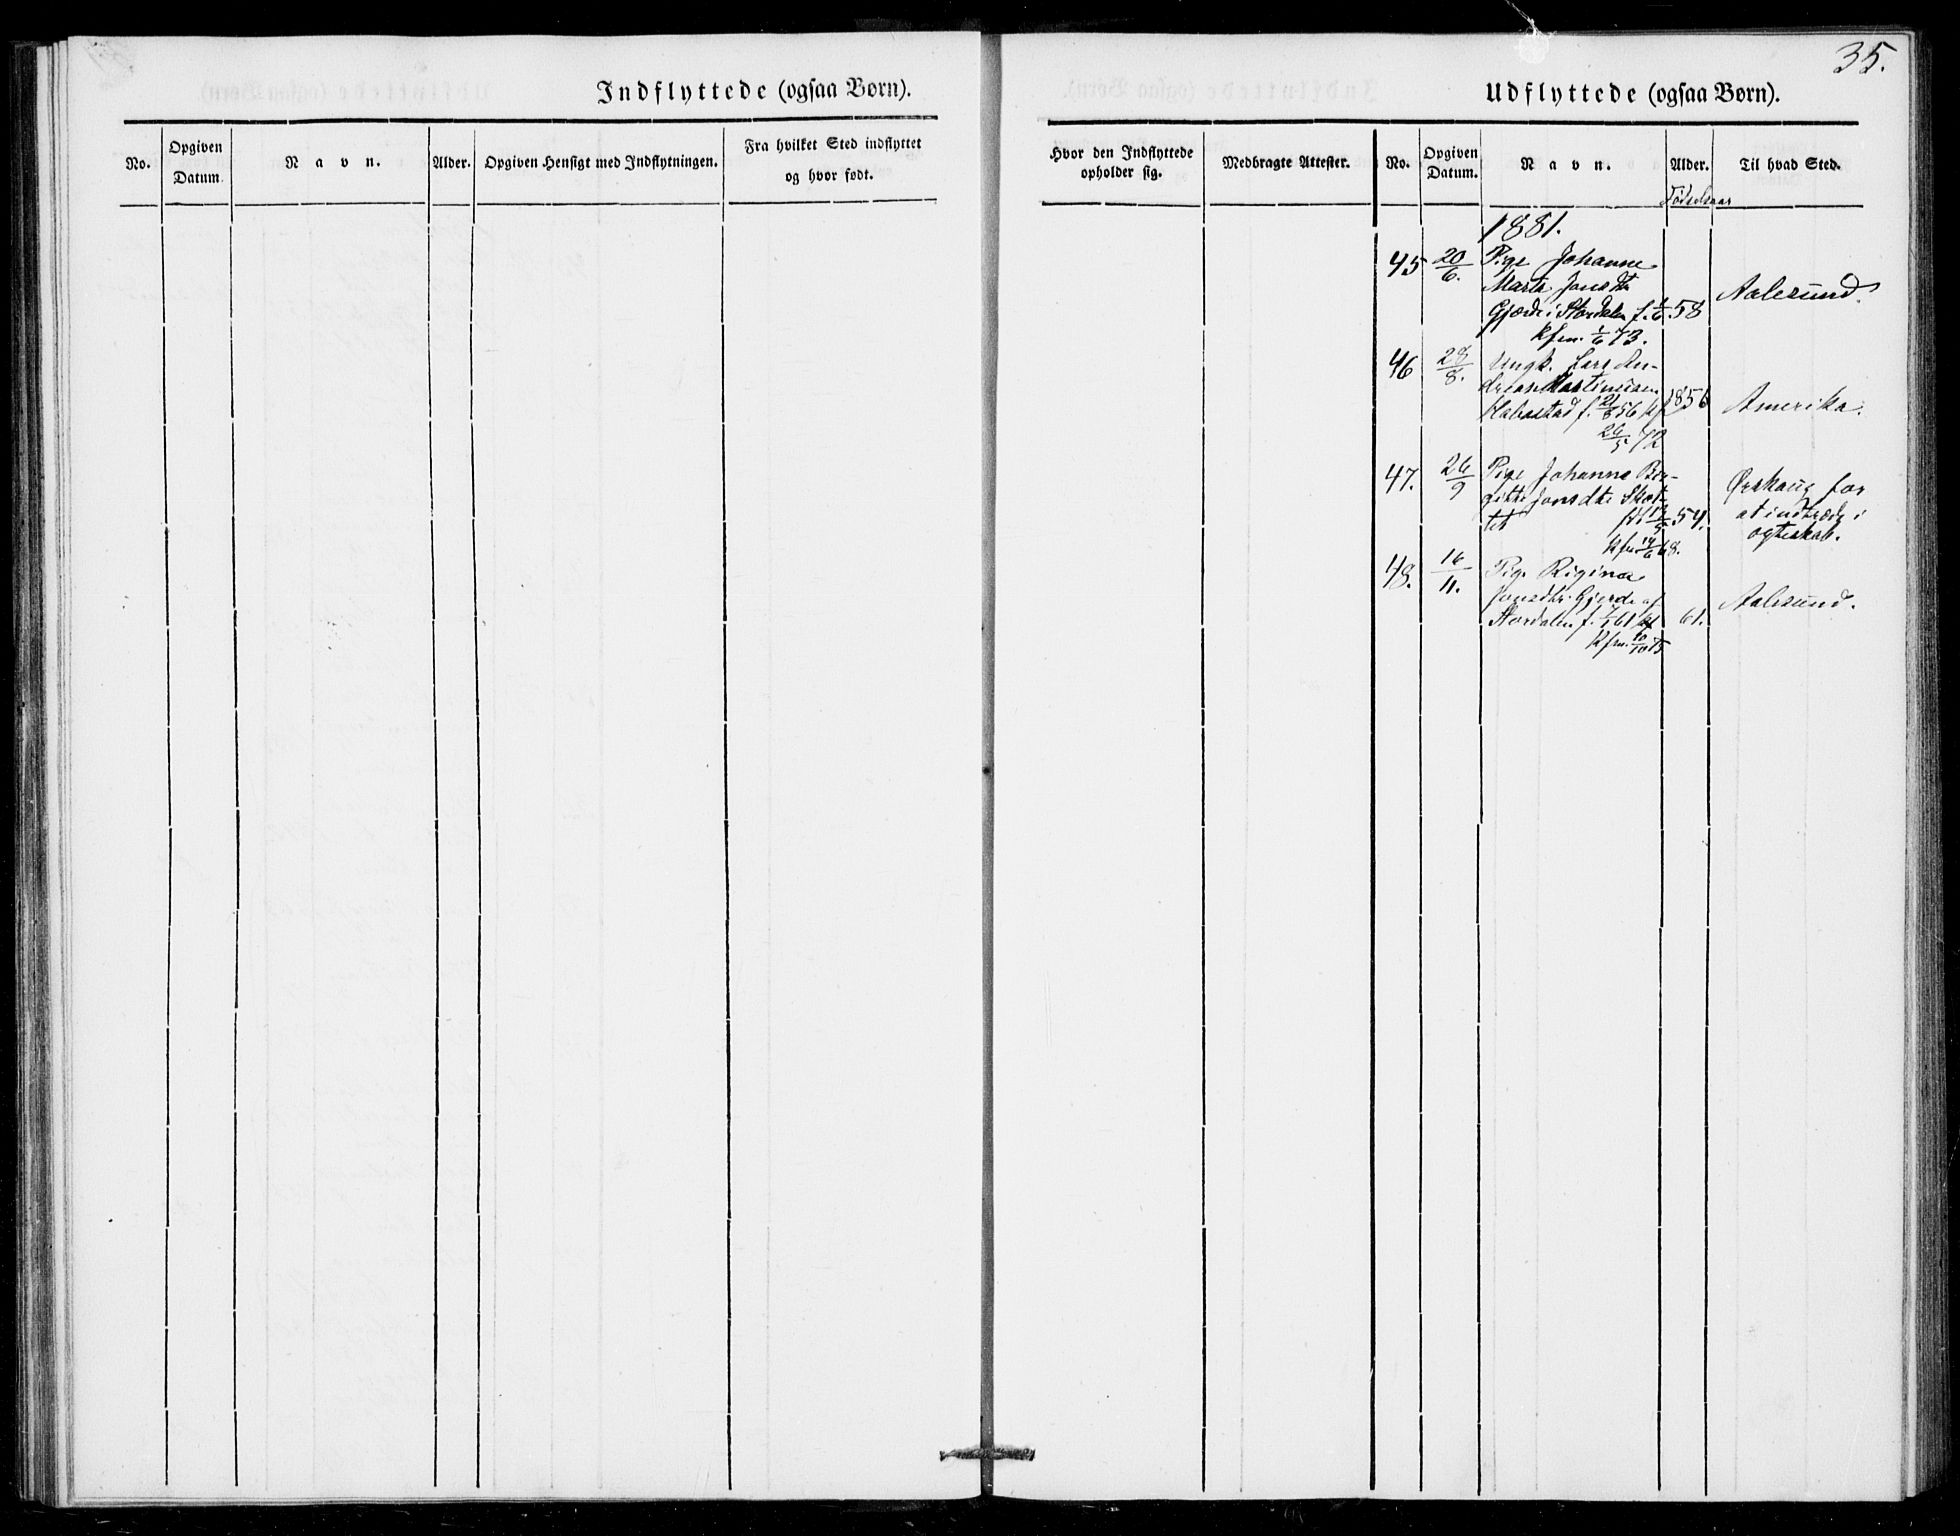 35.
Indflyttede (ogsaa Børn).
No.
Opgiven Datum.
Navn.
Alder.
Opgiven Hensigt med Indflytningen.
Fra hvilket Sted indflyttet
og hvor født.
Udflyttede (ogsaa Børn).
Hvor den Indflyttede
opholder sig.
Medbragte Attester.
No.
Opgiven
Datum.
Navn.
Alder.
Fødselsaar
Til hvad Sted.
1881.
45 20/6. Pige Johanne
Marta Jonsdtr
Gjærde i Stordalen f. 58 Aalesund.
kfm. 1/6 73.
46 28/8. Ungk. Lars An-
dreas Martinusen
Habostad f. 21/8 56 kf 1856 Amerika.
26/5 72
47. 26/9 Pige Johanna Ber-
gitte Jonsdtr Skot-
tet 54. Ørskoug for
at indtræde i
ægteskab.
kfm. 14/6 68.
48. 16/11. Pige Rigina
Jonsdtr. Gjerde af
Stordalen f. 61 61. Aalesund.
kfm. 10/10 75